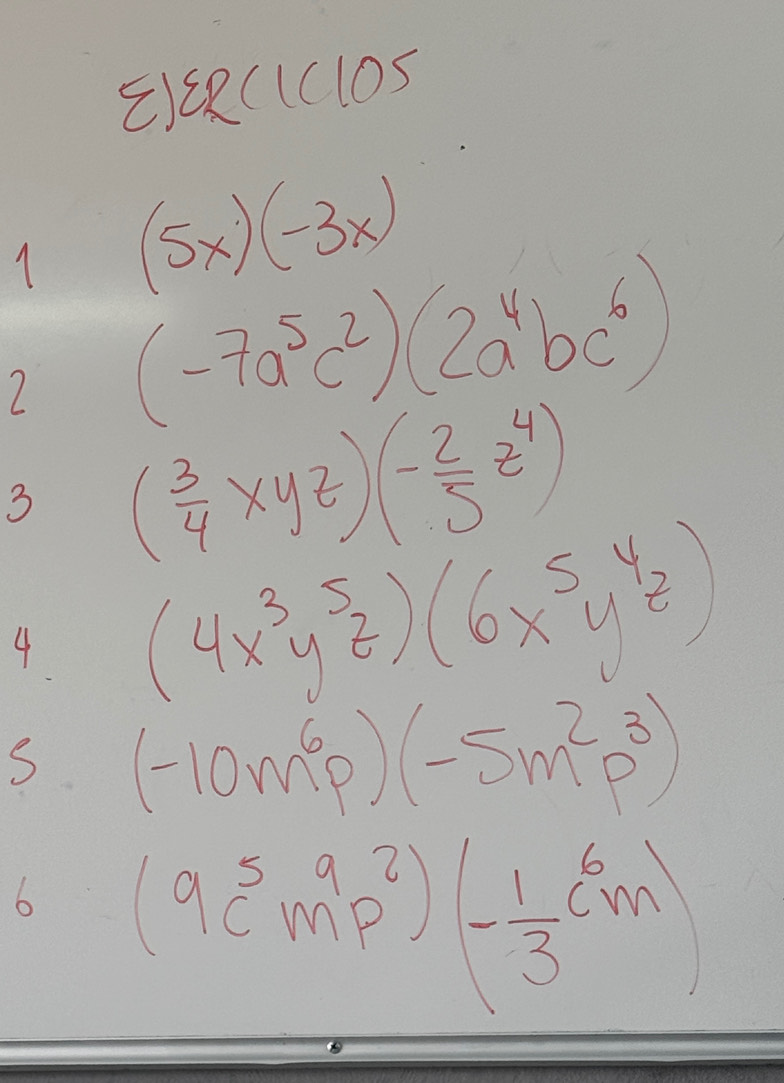 EJERCICIOS
1 (5x)(-3x)
2 (-7a⁵c²)(2a⁴bc⁶)
3 (3/4 xyz)(-2/5 z⁴)
4 (4x³y⁵z)(6x⁵y⁴z)
5 (-10m⁶p)(-5m²p³)
6 (9c⁵m⁹p²)(-1/3 c⁶m)